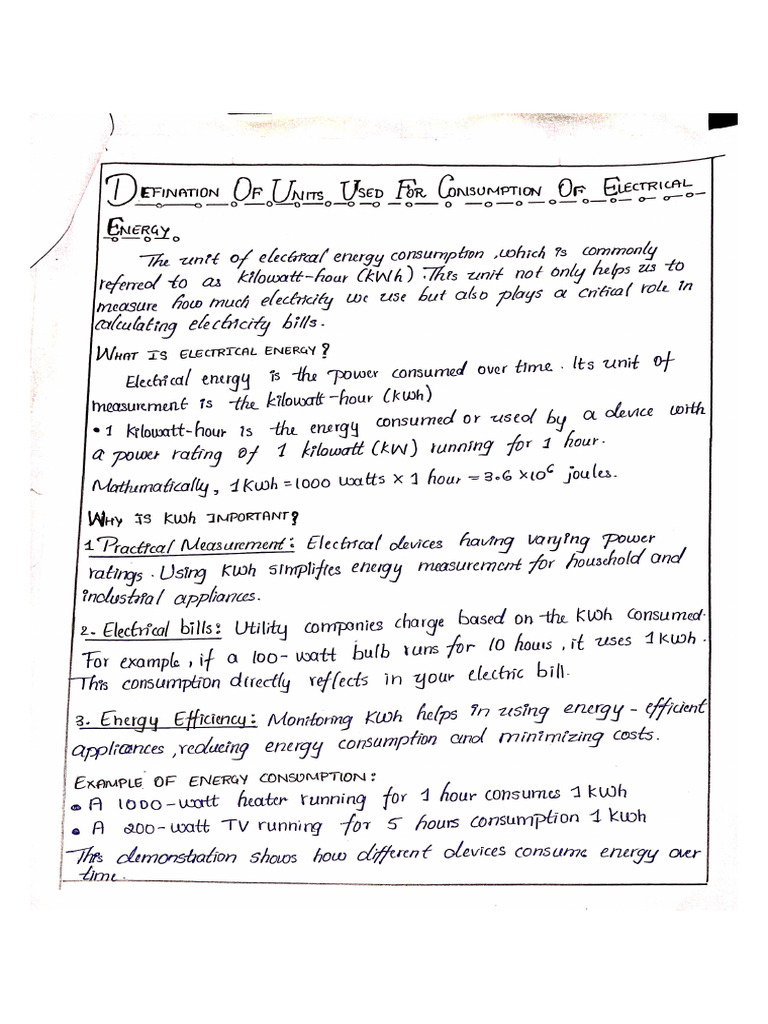 DEFINATION OF UNITS USED FOR CONSUMPTION OF ELECTRICAL
ENERGY
The unit of electrical energy consumption, which is commonly
referred to as kilowatt-hour (kWh). This unit not only helps us to
measure how much electricity we use but also plays a critical role in
calculating electricity bills.
WHAT IS ELECTRICAL ENERGY?
Electrical energy is the power consumed over time. Its unit of
measurement is the kilowatt-hour (kwh)
• 1 kilowatt-hour is the energy consumed or used by a device with
a power rating of 1 kilowatt (kW) running for 1 hour.
Mathematically, 1kwh = 1000 watts × 1 hour = 3.6 × 10⁶ joules.
WHY IS KWH IMPORTANT?
1 Practical Measurement: Electrical devices having varying power
ratings. Using kWh simplifies energy measurement for household and
industrial appliances.
2. Electrical bills: Utility companies charge based on the kWh consumed.
For example, if a 100-watt bulb runs for 10 hours, it uses 1 kWh.
This consumption directly reflects in your electric bill.
3. Energy Efficiency: Monitoring kWh helps in using energy-efficient
appliances, reducing energy consumption and minimizing costs.
EXAMPLE OF ENERGY CONSUMPTION:
• A 1000-watt heater running for 1 hour consumes 1 kWh
• A 200-watt TV running for 5 hours consumption 1 kWh
This demonstration shows how different devices consume energy over
time.